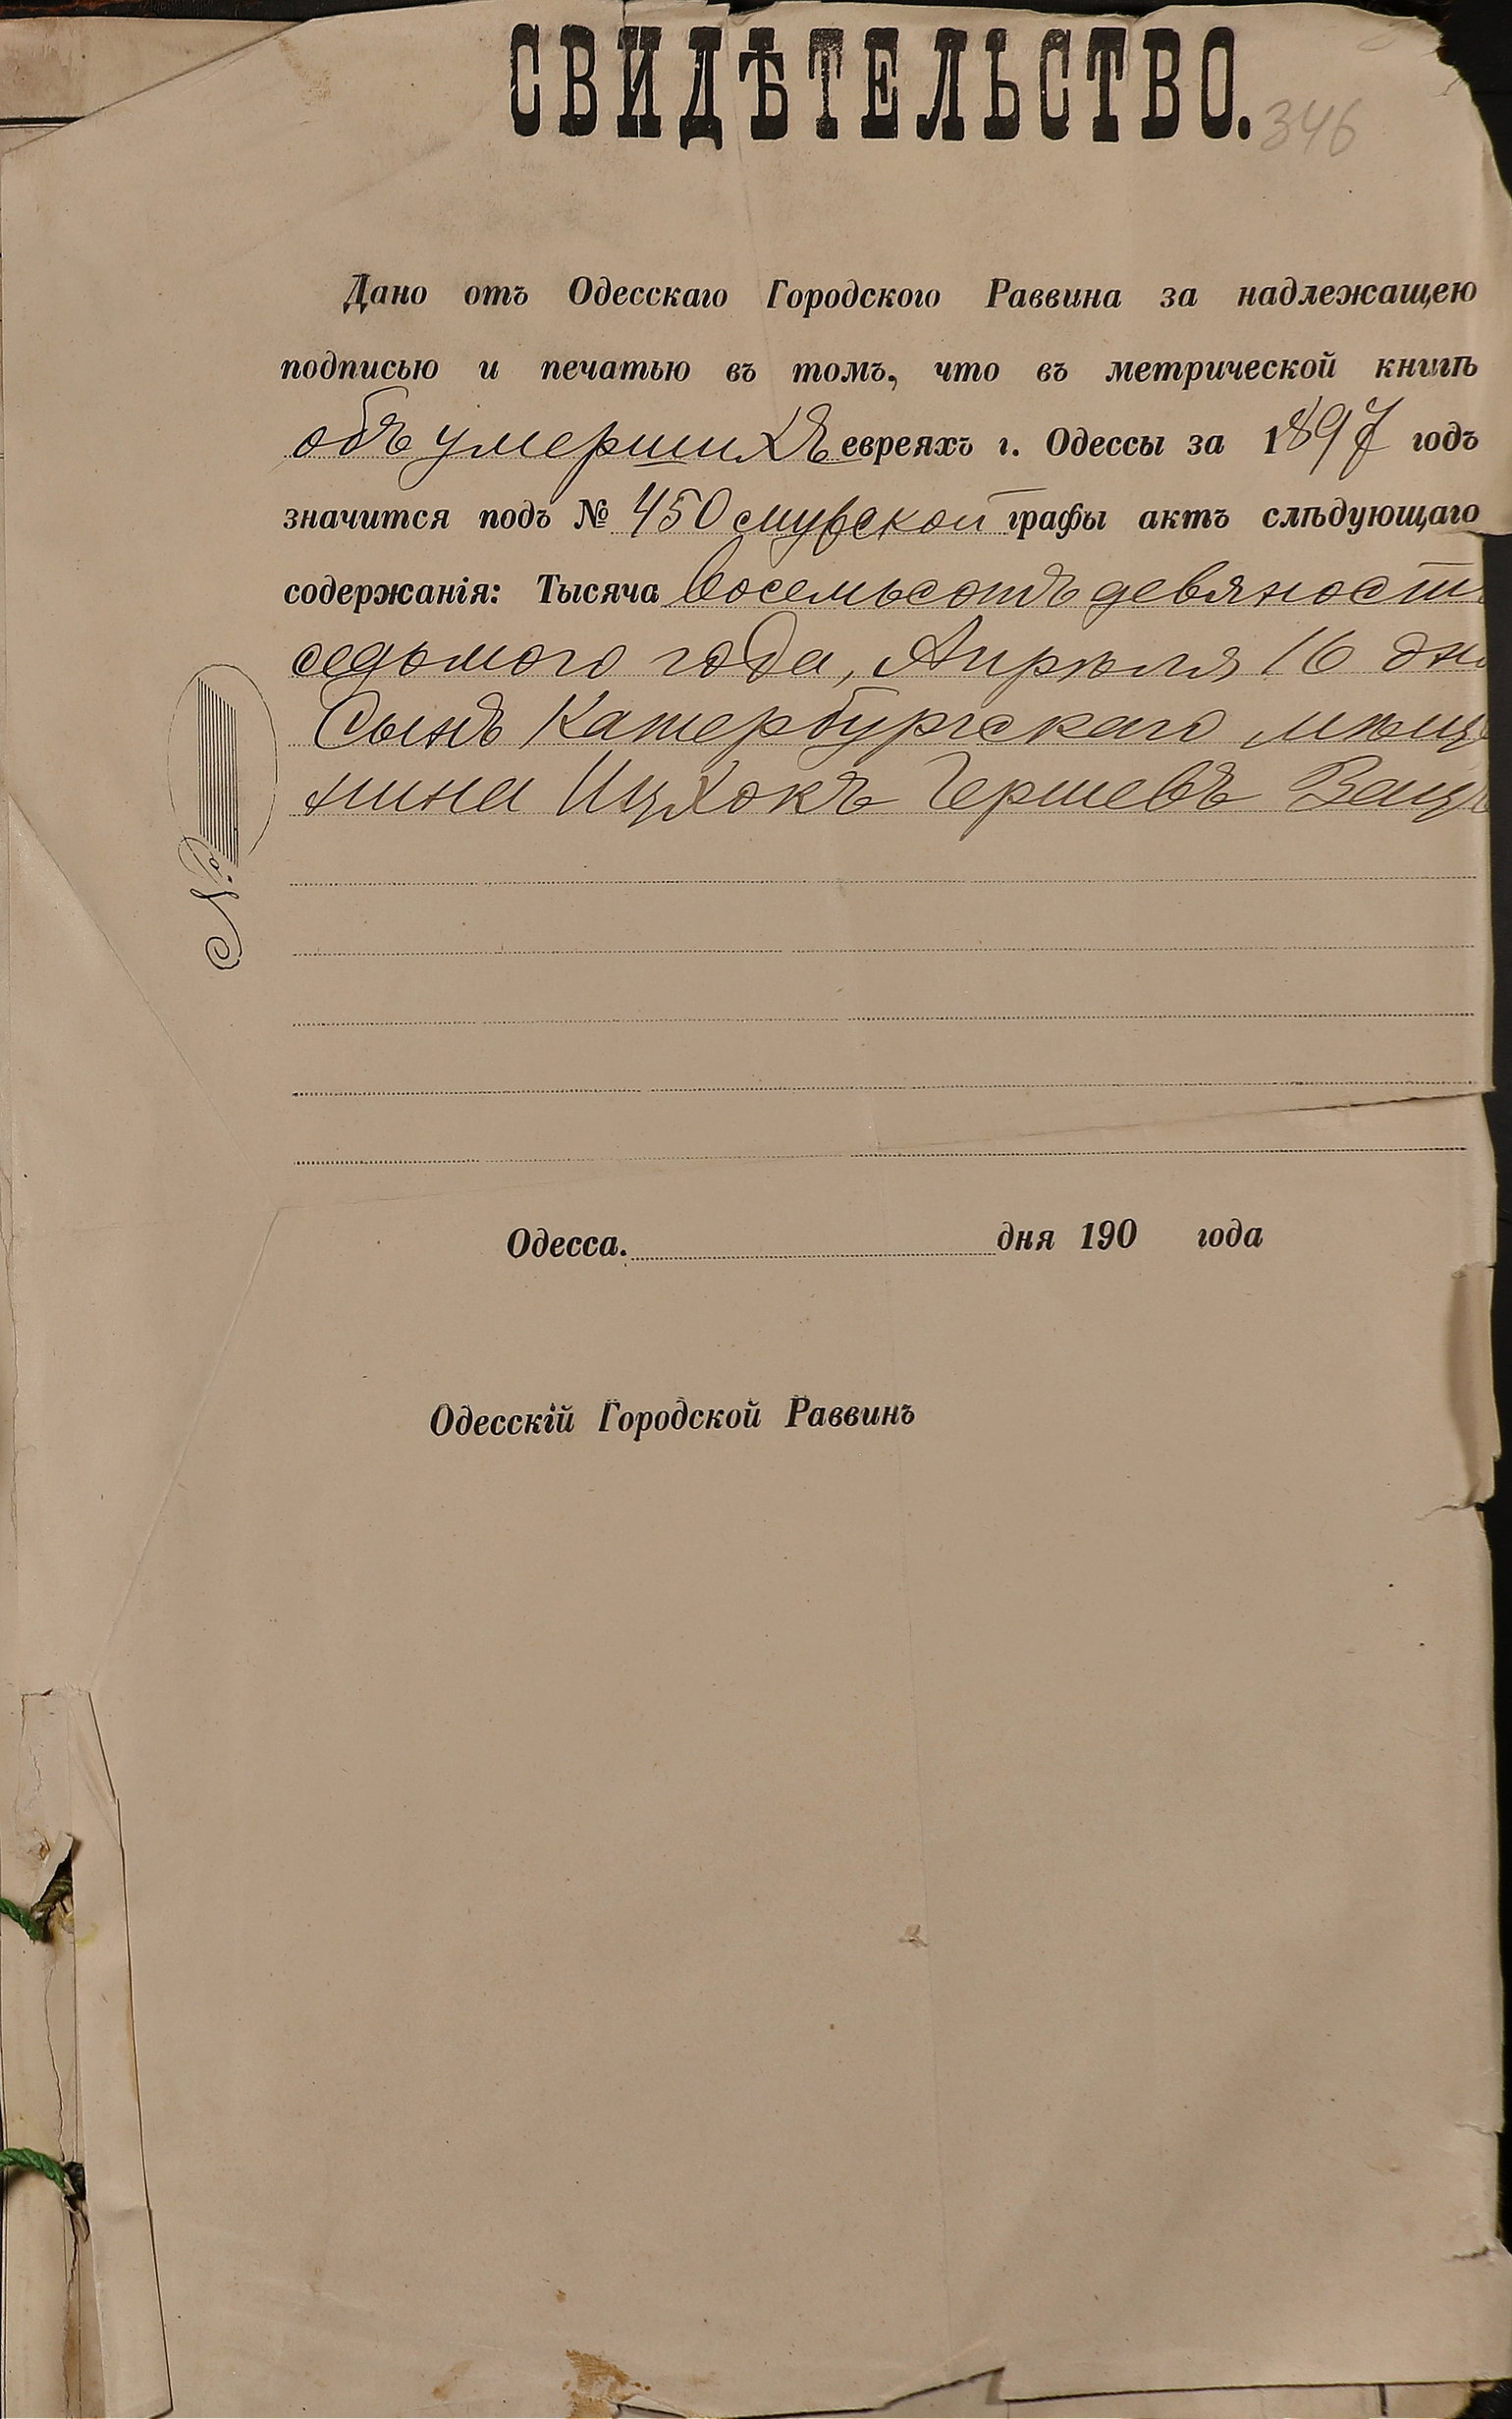 СВИДѢТЕЛЬСТВО.
346
Дано отъ Одесскаго Городского Раввина за надлежащею
подписью и печатью въ томъ, что въ метрической книгѣ
объ умершихъ евреяхъ г. Одессы за 1897 годъ
значится подъ № 450 мужской графы актъ слѣдующаго
содержанія: Тысяча восемьсотъ девяност
седьмого года, Апрѣля 16 дн
Сынъ Катербургскаго мѣщ
нина Ицхокъ Гершевъ
№
Одесса. дня 190 года
Одесскій Городской Раввинъ